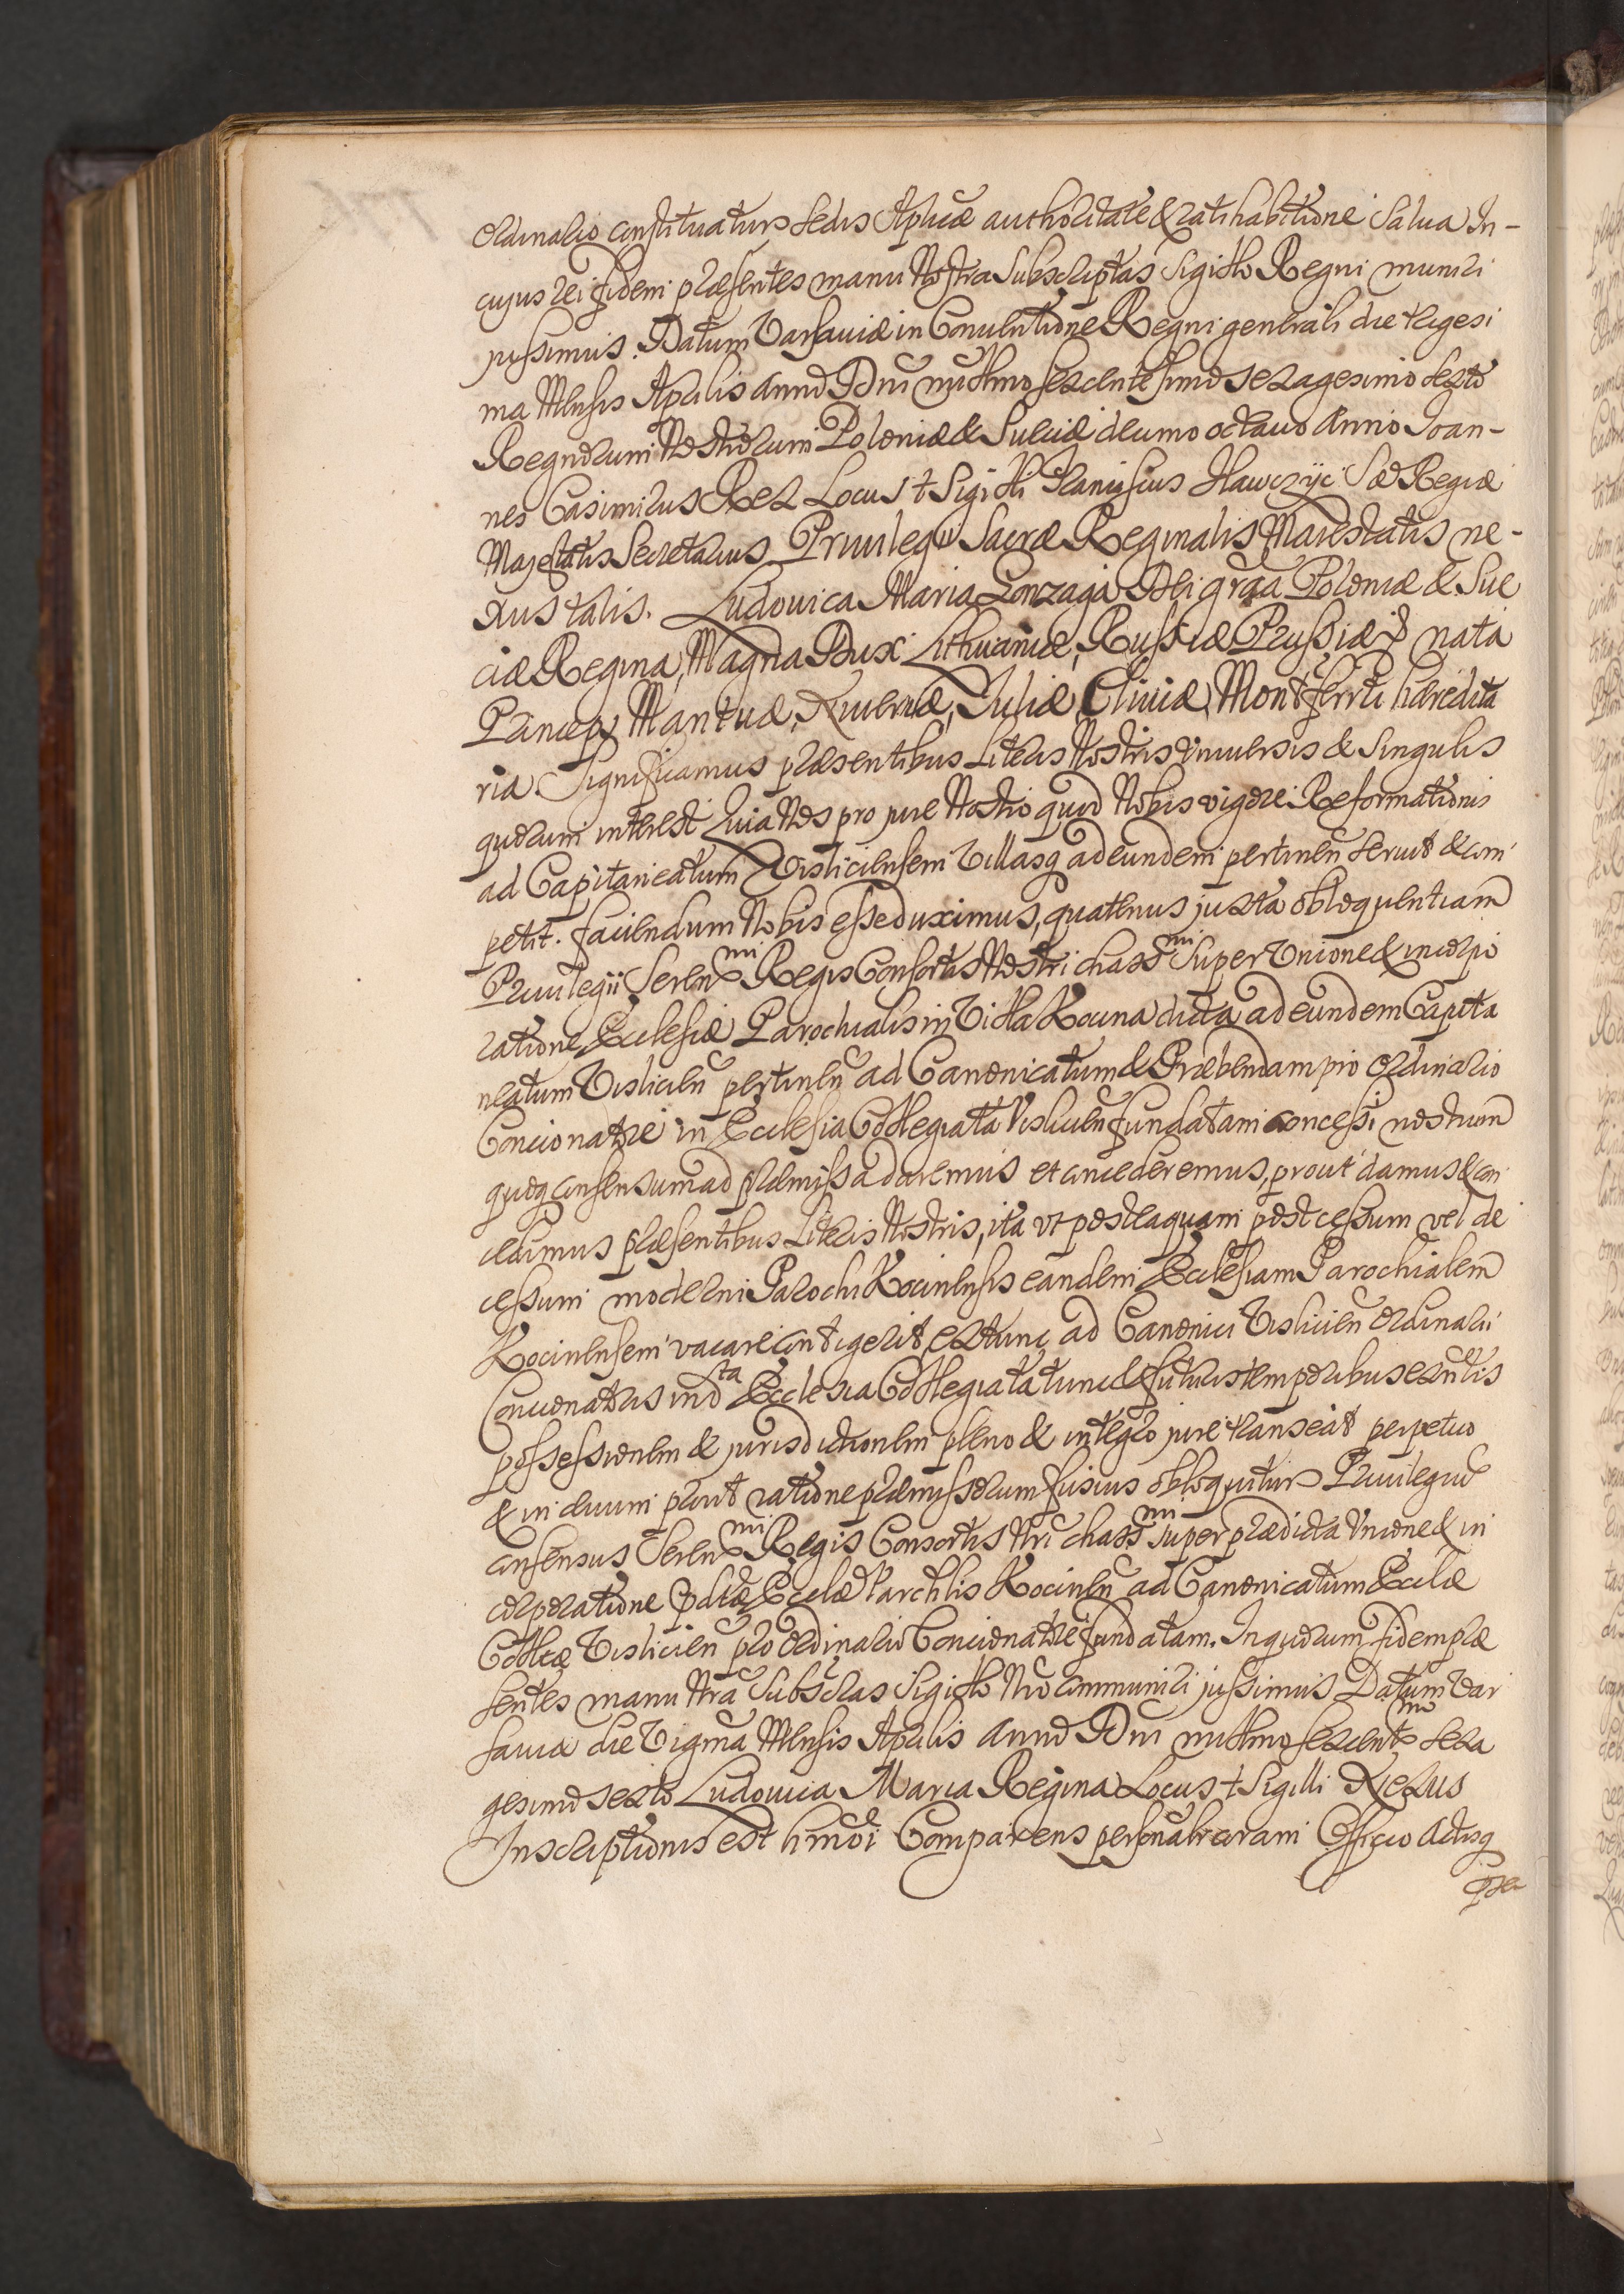 Ordinario constituatur sedis Aplicæ authoritate & ratihabitione Salva In-
cujus rei fidem præsentes manu Nostra Subscriptas Sigillo Regni muniri
jussimus. Datum Varsaviæ in Conventione Regni generali die trigesi
ma Mensis Aprilis Anno Dni millmo sexcentesimo sexagesimo sexto
Regnorum Nostrorum Poloniæ & Sueciæ decimo octavo Anno Joan-
nes Casimirus Rex Locus † Sigilli Sæ Regiæ
Majestatis Secretarius Privilegii Sacræ Reginalis Maiestatis ne-
xus talis. Ludovica Maria Gonzaga Dei gr̃aa Poloniæ & Sue
ciæ Regina, Magna Dux Lithuaniæ, Russiæ Prussiæ & nata
Princeps Mantuæ, Niverniæ, Juliæ, Cliviæ, Montferrti hæredita
ria. Significamus præsentibus Literis Nostris Universis & Singulis
quorum interest Quia Nos pro jure Nostro quod Nobis vigore Reformationis
ad Capitaneatum Visliciensem Villasq ad eundem pertinen̄ servit & com
petit. faciendum Nobis esse duximus, quatenus juxta obloquentiam
Privilegii Seren mi Regis Consortis Nostri chass mi Super Unione & incorpo
ratione Ecclesiæ Parochialis in Villa Kocina dicta ad eundem Capita
neatum Vislicien̄ pertinen̄ ad Canonicatum & Præbendam pro Ordinario
Concionatore in Ecclesia Collegiata Vislicien̄ fundatam concessi nostrum
quoq consensum ad præmissa daremus et concederemus, prout damus & con
cedimus præsentibus Literis Nostris, ita vt posteaquam post cessum vel de
cessum moderni Parochi Kocinensis eandem Ecclesiam Parochialem
Kocinensem vacare contigerit, extunc ad Canonici Vislicien̄ Ordinarii
Concionatoris in d ta Ecclesia Collegiata tunc & futuris temporibus exn̄tis
possessionem & jurisdictionem pleno & integro jure transeat perpetuo
& in ævum prout ratione præmissorum fusius obloquitur Privilegium
consensus Seren mi Regis Consortis Nri chass mi super prædicta Unione & in
corporatione pdtæ Ecclæ Parchlis Kocinen̄ ad Canonicatum Ecclæ
Colltæ Vislicien̄ pro Ordinario Concionatore fundatam. In quorum fidem præ
sentes manu Nra Subscras Sigillo Nro communiri jussimus Datum Var
saviæ die Vigma Mensis Aprilis Anno Dni millmo sexcent mo sexa
gesimo sexto Ludovica Maria Regina Locus † Sigilli Nexus
Inscriptionis est hmõi Comparens personalr coram Officio Actisq